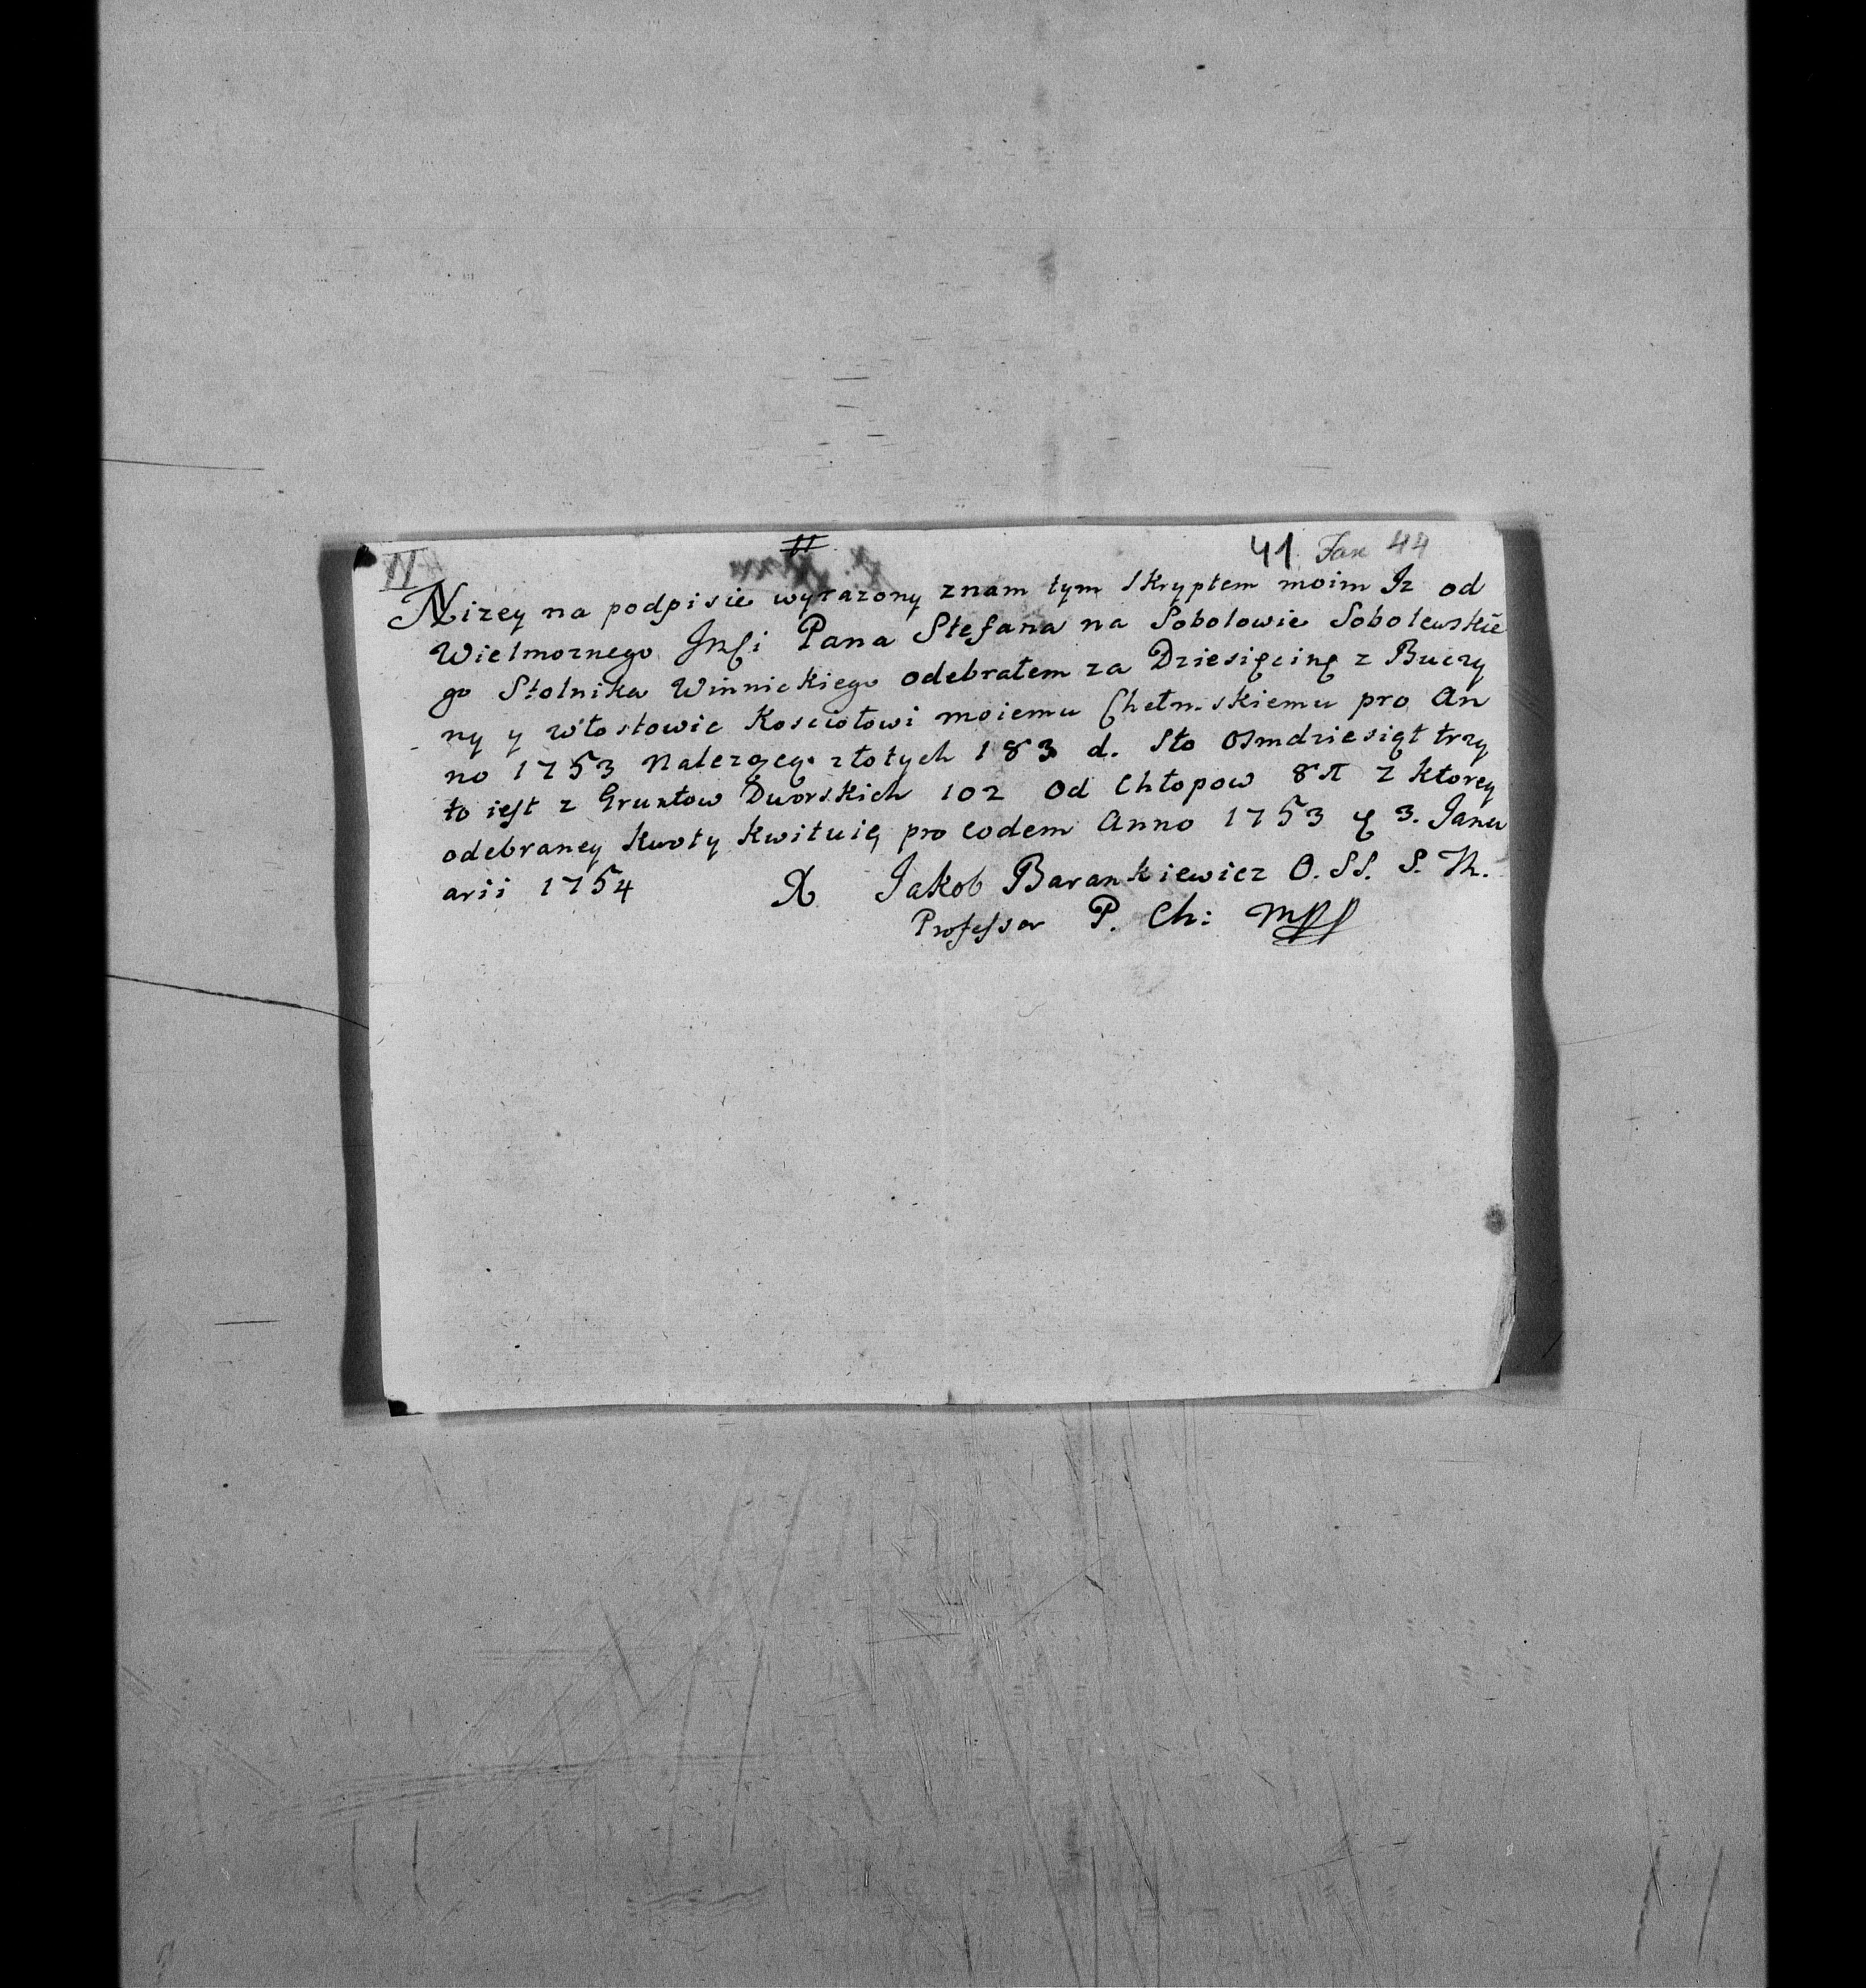 II
41 Fasc 44
Nizey na podpisie wyrazony znam tym Skryptem moim Iz od
Wielmoznego Jmci Pana Stefana na Sobolowie Sobolewskie
go Stolnika Winnickiego odebrałem za Dziesięcinę z Buczy
ny y Włostowic Kosciołowi moiemu Chełm.skiemu pro An
no 1753 Nalezącą. złotych 183 d. Sto Osmdziesiąt trzy
to iest z Gruntow Dworskich 102 Od Chłopow 81 z ktorey
odebraney kwoty kwituię pro eodem Anno 1753 d 3. Janu
arii 1754 X Jakob Barankiewicz O. SS. S. Th.
Professor P. Ch: mpp